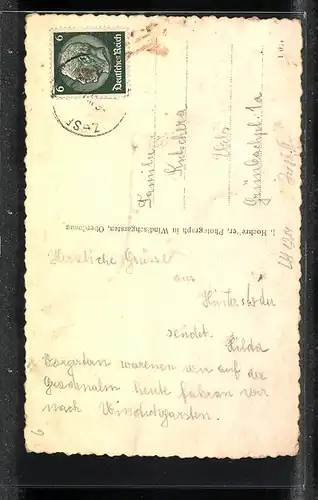 Herzliche Grüsse
aus
Hinterstoder
sendet. Hilda
Vorgestern warenen wir auf der
Gradenalm heute fahren wir
nach Windichgarsten.
6
Familie
Kutschera
Wels
Grünbachpl. 1a
J. Hochre er, Photograph in Windischgarsten, Oberdonau
6 Deutsches Reich 6